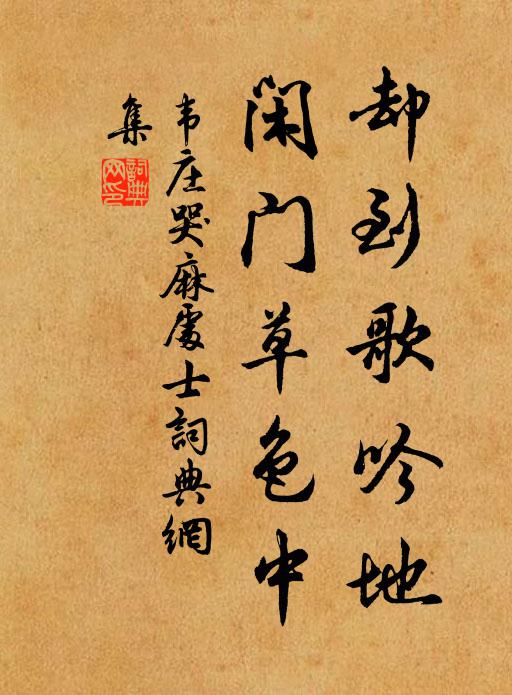 却到歌吟地
闲门草色中
韦庄哭麻處士詞典網
集
詞典
网印